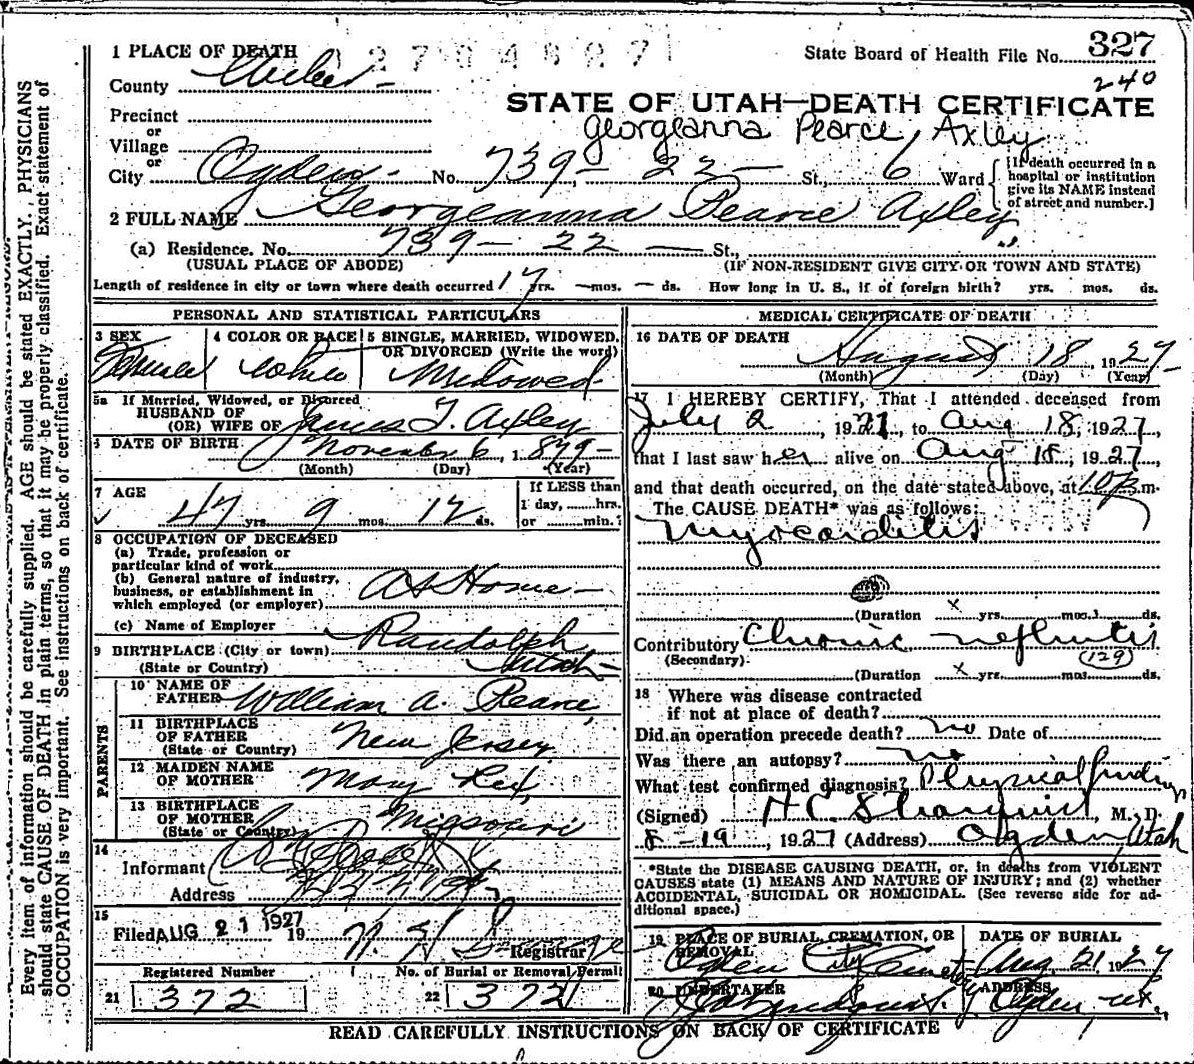 1 PLACE OF DEATH
State Board of Health File No. 327
County Weber
240
STATE OF UTAH—DEATH CERTIFICATE
Precinct
Georgeanna Pearce Axley
or
Village
or
City Ogden No. 739 - 22 - St., 6 Ward
[If death occurred in a hospital or institution give its NAME instead of street and number.]
2 FULL NAME Georgeanna Pearce Axley
(a) Residence. No. 739 - 22 - St.,
(USUAL PLACE OF ABODE) (IF NON-RESIDENT GIVE CITY OR TOWN AND STATE)
Length of residence in city or town where death occurred 17 yrs. — mos. — ds. How long in U. S., if of foreign birth? yrs. mos. ds.
PERSONAL AND STATISTICAL PARTICULARS
3 SEX Female
4 COLOR OR RACE White
5 SINGLE, MARRIED, WIDOWED, OR DIVORCED (Write the word) Widowed
5a If Married, Widowed, or Divorced
HUSBAND OF
(OR) WIFE OF James T. Axley
6 DATE OF BIRTH November 6, 1879
(Month) (Day) (Year)
7 AGE 47 yrs. 9 mos. 12 ds.
If LESS than 1 day, ......hrs. or ......min.?
8 OCCUPATION OF DECEASED
(a) Trade, profession or
particular kind of work
(b) General nature of industry,
business, or establishment in
which employed (or employer) At Home
(c) Name of Employer
9 BIRTHPLACE (City or town) Randolph
(State or Country) Utah
PARENTS
10 NAME OF FATHER William A. Pearce
11 BIRTHPLACE OF FATHER (State or Country) New Jersey
12 MAIDEN NAME OF MOTHER Mary Rex
13 BIRTHPLACE OF MOTHER (State or Country) Missouri
14
Informant
Address
15
Filed AUG 21 1927 19
Registrar
Registered Number No. of Burial or Removal Permit
21 372 22 372
MEDICAL CERTIFICATE OF DEATH
16 DATE OF DEATH
August 18 1927
(Month) (Day) (Year)
17 I HEREBY CERTIFY, That I attended deceased from
July 2, 1921, to Aug 18, 1927,
that I last saw her alive on Aug 18, 1927
and that death occurred, on the date stated above, at 10 p.m.
The CAUSE DEATH* was as follows:
Myocarditis
(Duration x yrs. mos. ds.
Contributory Chronic nephritis
(Secondary) (129)
(Duration x yrs. mos. ds.
18 Where was disease contracted
if not at place of death?
Did an operation precede death? no Date of
Was there an autopsy? no
What test confirmed diagnosis? Physical findings
(Signed) M. D.
8-19, 1927 (Address) Ogden, Utah
*State the DISEASE CAUSING DEATH, or, in deaths from VIOLENT
CAUSES state (1) MEANS AND NATURE OF INJURY; and (2) whether
ACCIDENTAL, SUICIDAL OR HOMICIDAL. (See reverse side for ad-
ditional space.)
19 PLACE OF BURIAL, CREMATION, OR REMOVAL DATE OF BURIAL
Ogden City Cemetery Aug. 21, 1927
20 UNDERTAKER ADDRESS
Ogden, Ut.
READ CAREFULLY INSTRUCTIONS ON BACK OF CERTIFICATE
Every item of information should be carefully supplied. AGE should be stated EXACTLY. PHYSICIANS
should state CAUSE OF DEATH in plain terms, so that it may be properly classified. Exact statement of
OCCUPATION is very important. See instructions on back of certificate.